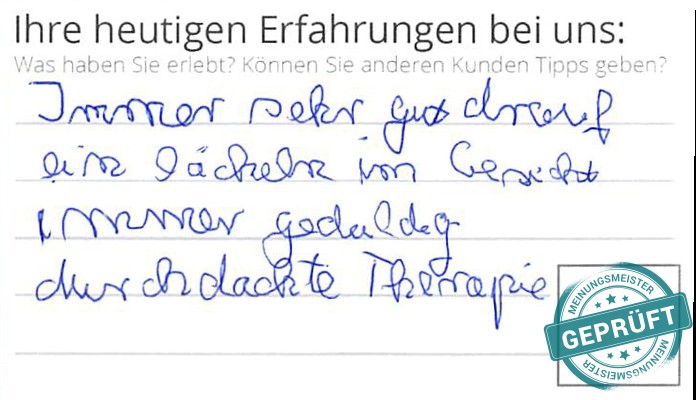 Ihre heutigen Erfahrungen bei uns:
Was haben Sie erlebt? Können Sie anderen Kunden Tipps geben?
Immer sehr gut drauf
ein lächeln im Gesicht
immer geduldig
durchdachte Therapie
MEINUNGSMEISTER
GEPRÜFT
MEINUNGSMEISTER